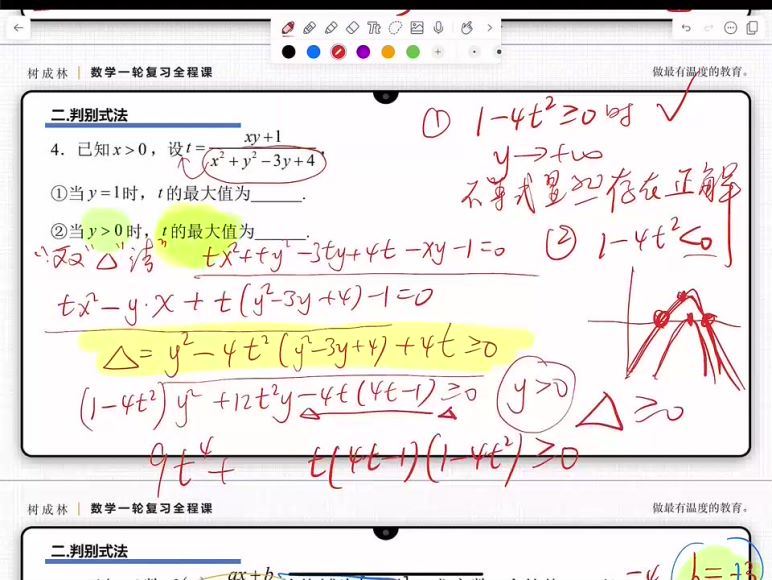 树成林 | 数学一轮复习全程课
做最有温度的教育。
二.判别式法
4. 已知 x>0, 设 t= (xy+1)/(x²+y²−3y+4).
①当 y=1时, t 的最大值为______.
②当 y>0 时, t的最大值为______.
"双"△"法"
tx²+ty²−3ty+4t−xy−1=0
tx²−y·x+t(y²−3y+4)−1=0
△=y²−4t²(y²−3y+4)+4t≥0
(1−4t²)y²+12t²y−4t(4t−1)≥0
y>0
9t⁴+ t(4t−1)(1−4t²)≥0
① 1−4t²≥0时 ✓
y→+∞
不等式 存在正解
② 1−4t²<0
△≥0
树成林 | 数学一轮复习全程课
做最有温度的教育。
二.判别式法
ax+b
−4
b=±3